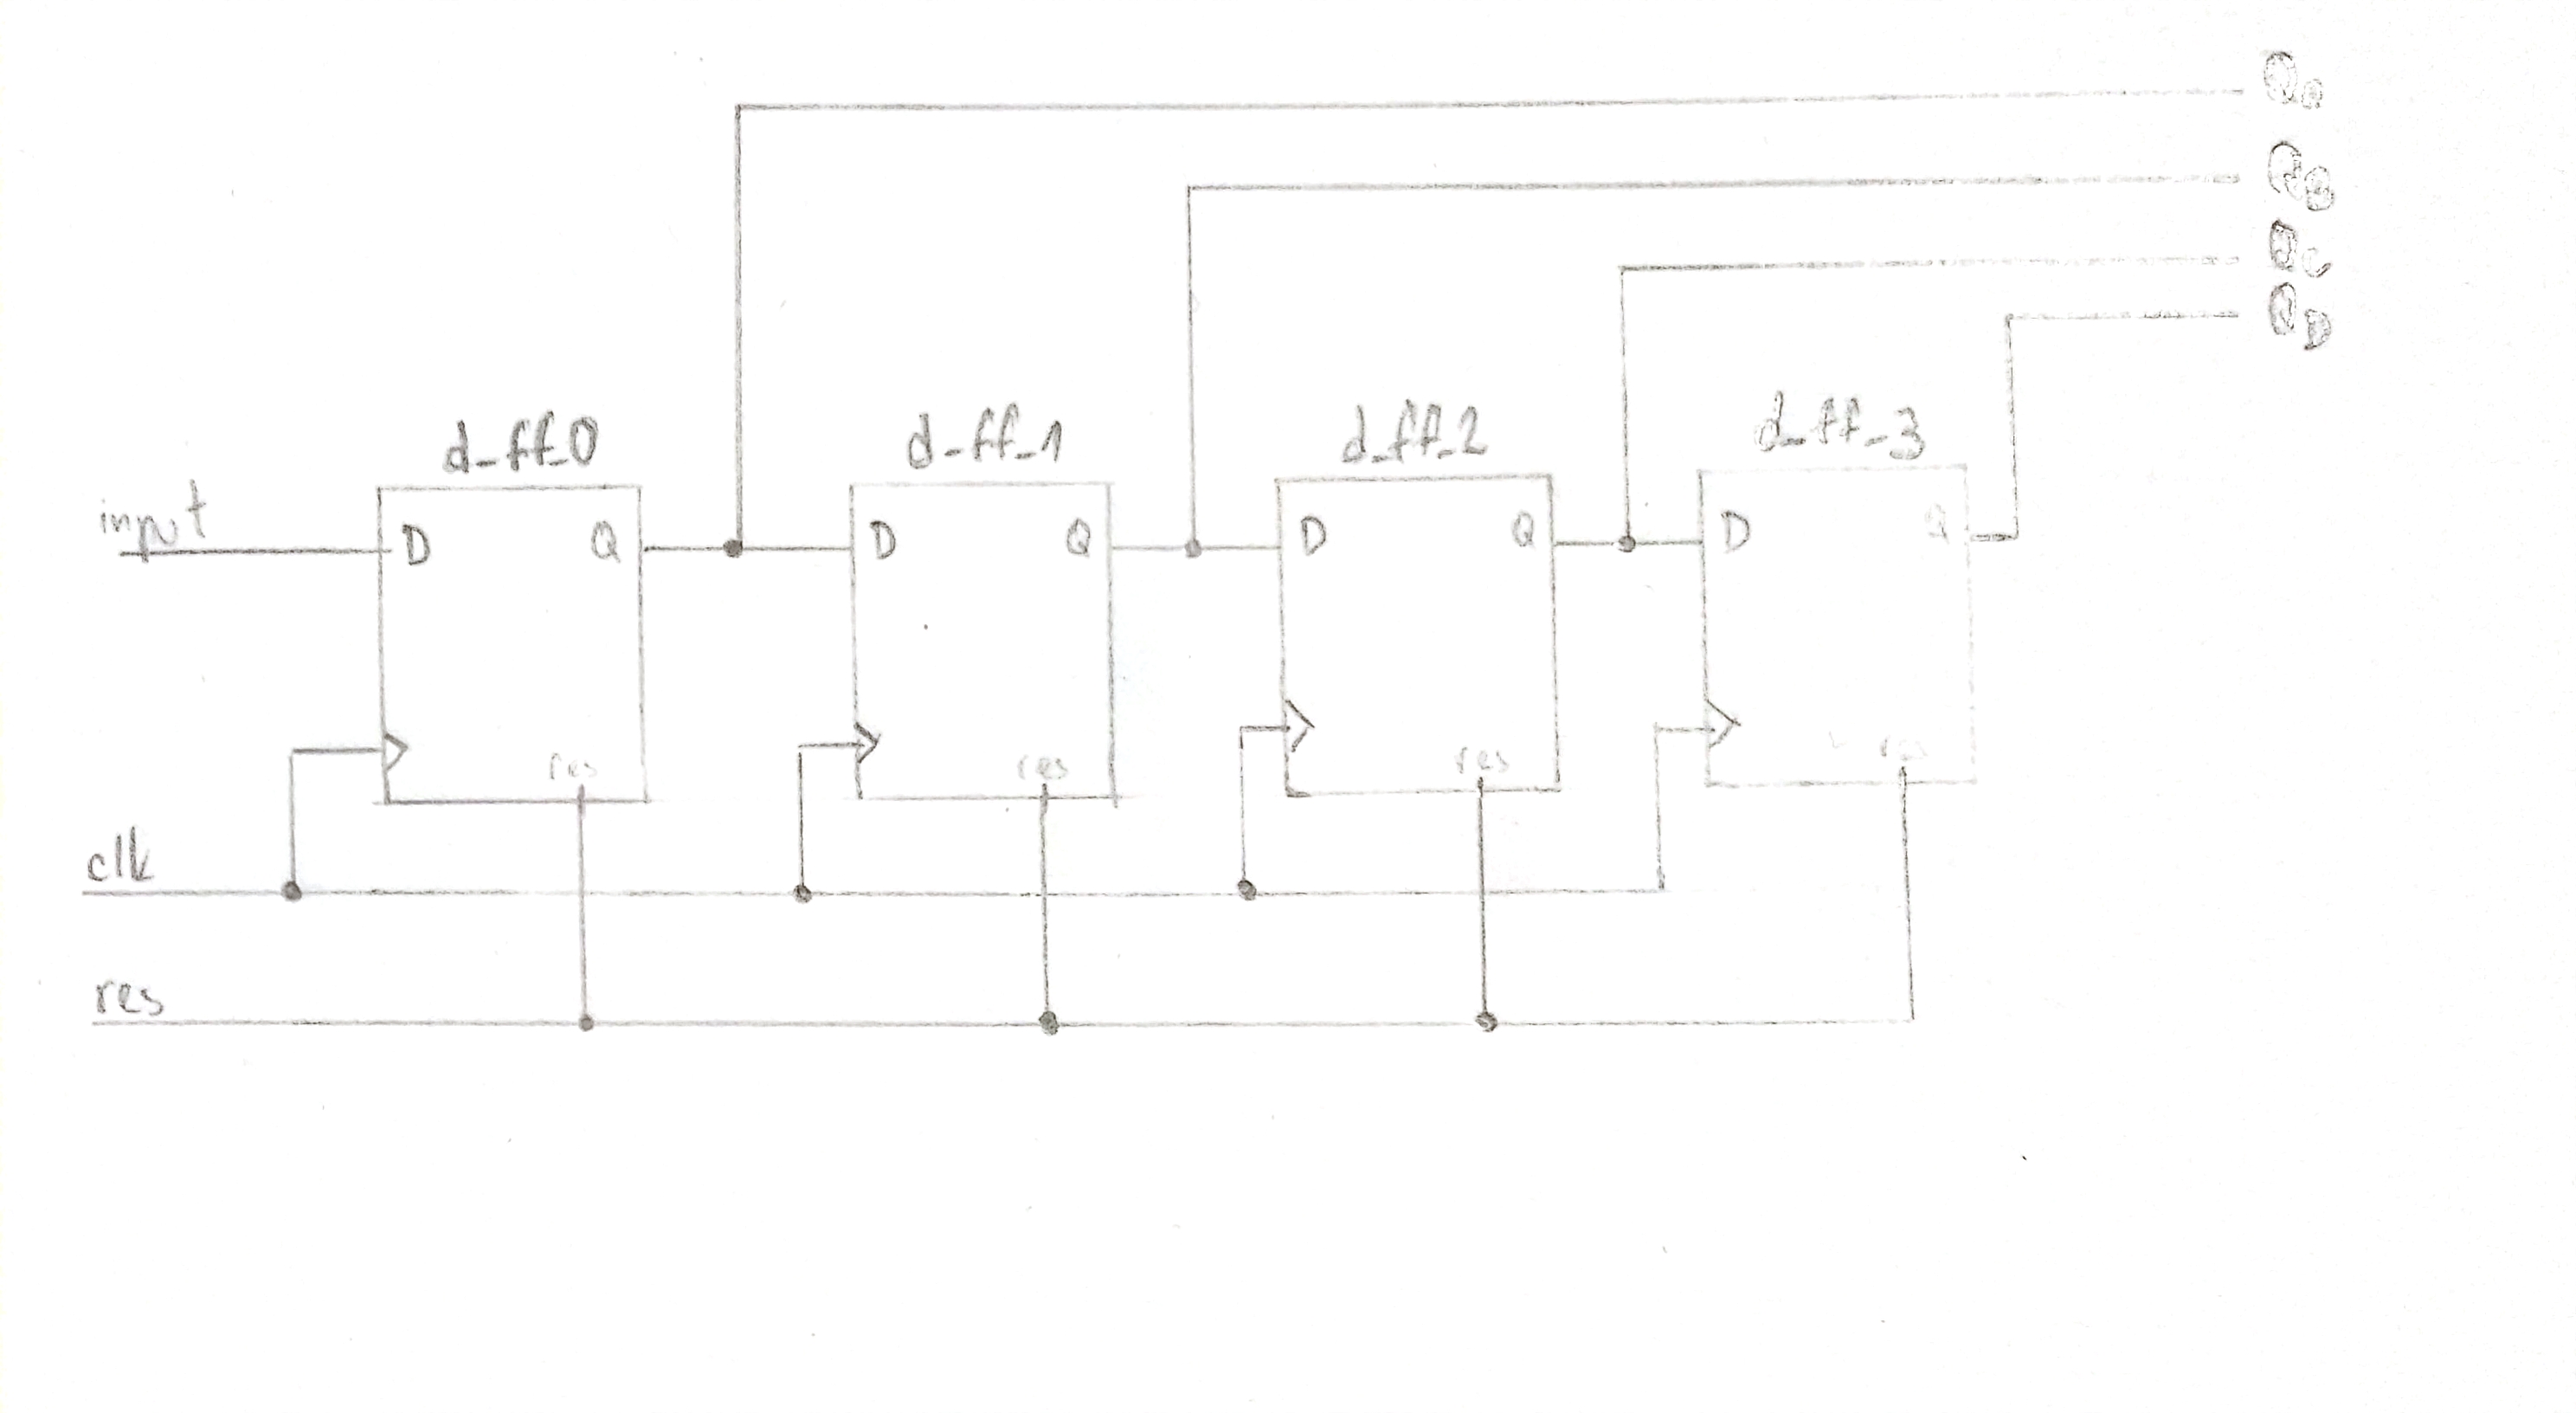 Q_A
Q_B
Q_C
Q_D
d_ff_0 d_ff_1 d_ff_2 d_ff_3
input
D Q D Q D Q D Q
res res res res
clk
res